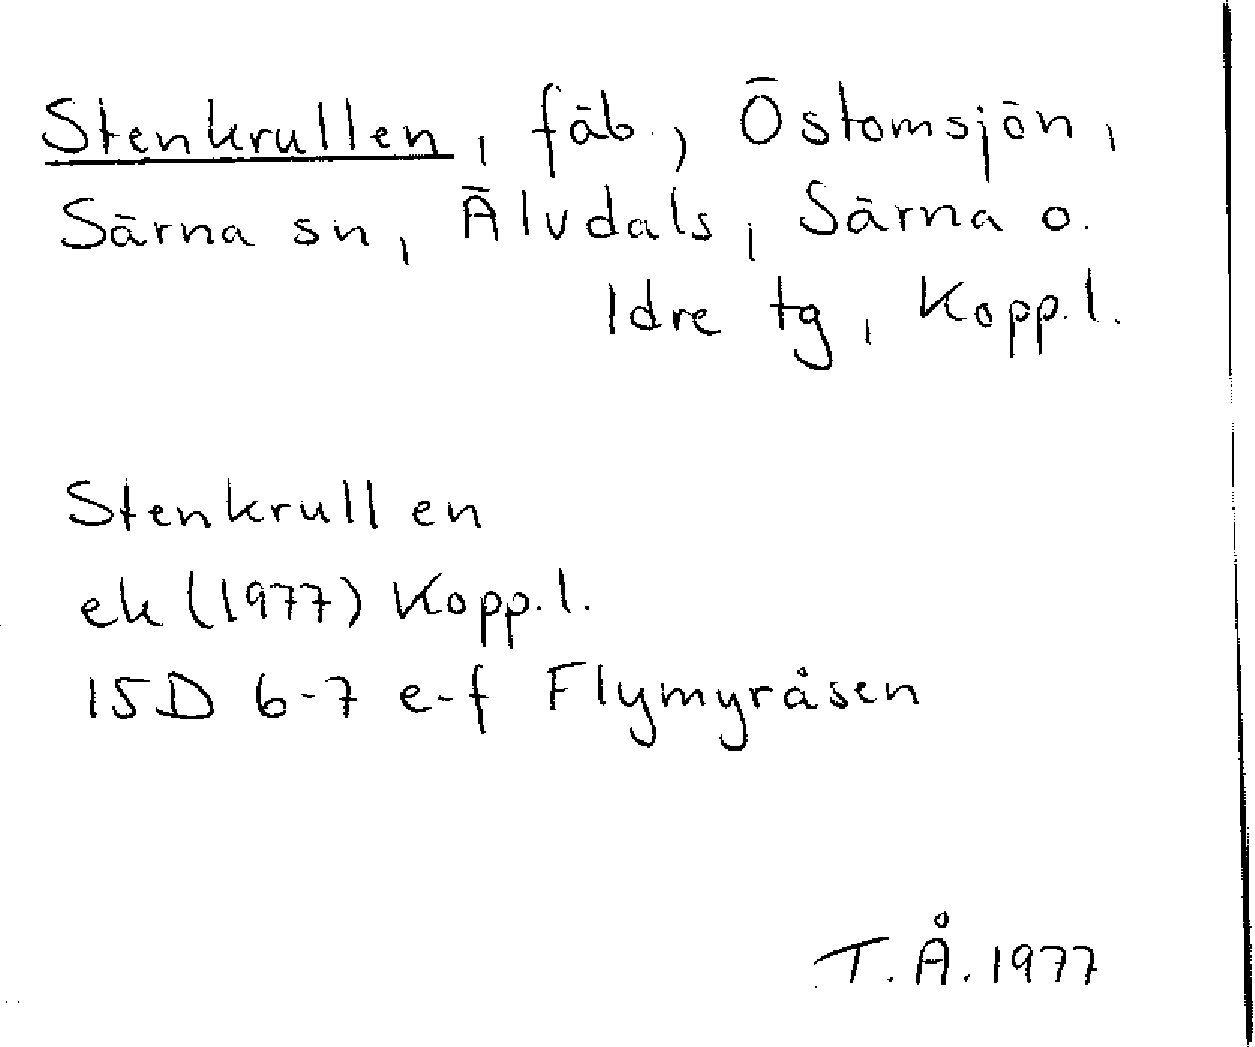 Stenkrullen, fäb., Östomsjön,
Särna sn, Älvdals, Särna o.
Idre tg, Kopp.l.
Stenkrullen
ek (1977) Kopp.l.
15D 6-7 e-f Flymyråsen
T.Å. 1977